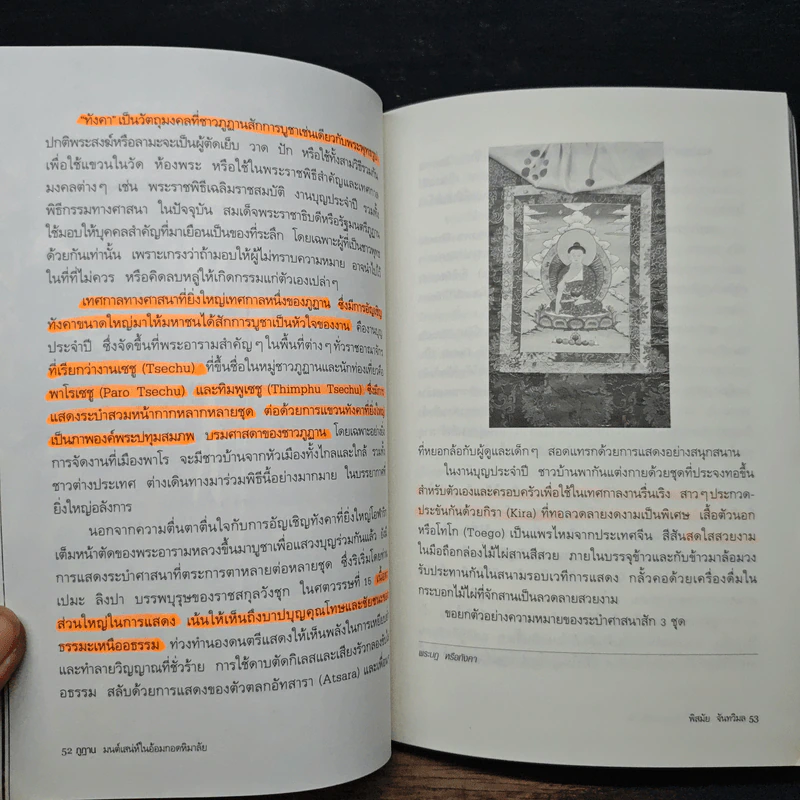 "ทังคา" เป็นวัตถุมงคลที่ชาวภูฏานสักการบูชาเช่นเดียวกับพระพุทธรูป
ปกติพระสงฆ์หรือลามะจะเป็นผู้ตัดเย็บ วาด ปัก หรือใช้ทั้งสามวิธีรวมกัน
เพื่อใช้แขวนในวัด ห้องพระ หรือใช้ในพระราชพิธีสำคัญและเทศกาล
มงคลต่างๆ เช่น พระราชพิธีเฉลิมราชสมบัติ งานบุญประจำปี รวมทั้ง
พิธีกรรมทางศาสนา ในปัจจุบัน สมเด็จพระราชาธิบดีหรือรัฐมนตรีภูฏาน
ใช้มอบให้บุคคลสำคัญที่มาเยือนเป็นของที่ระลึก โดยเฉพาะผู้ที่เป็นชาวพุทธ
ด้วยกันเท่านั้น เพราะเกรงว่าถ้ามอบให้ผู้ไม่ทราบความหมาย อาจนำไปไว้
ในที่ที่ไม่ควร หรือคิดลบหลู่ให้เกิดกรรมแก่ตัวเองเปล่าๆ
เทศกาลทางศาสนาที่ยิ่งใหญ่เทศกาลหนึ่งของภูฏาน ซึ่งมีการอัญเชิญ
ทังคาขนาดใหญ่มาให้มหาชนได้สักการบูชาเป็นหัวใจของงาน คืองานบุญ
ประจำปี ซึ่งจัดขึ้นที่พระอารามสำคัญๆ ในพื้นที่ต่างๆ ทั่วราชอาณาจักร
ที่เรียกว่างานเซชู (Tsechu) ที่ขึ้นชื่อในหมู่ชาวภูฏานและนักท่องเที่ยวคือ
พาโรเซชู (Paro Tsechu) และทิมพูเซชู (Thimphu Tsechu) ซึ่งมีการ
แสดงระบำสวมหน้ากากหลากหลายชุด ต่อด้วยการแขวนทังคาที่ยิ่งใหญ่
เป็นภาพองค์พระปทุมสมภพ บรมศาสดาของชาวภูฏาน โดยเฉพาะอย่างยิ่ง
การจัดงานที่เมืองพาโร จะมีชาวบ้านจากหัวเมืองทั้งไกลและใกล้ รวมทั้ง
ชาวต่างประเทศ ต่างเดินทางมาร่วมพิธีนี้อย่างมากมาย ในบรรยากาศที่
ยิ่งใหญ่อลังการ
นอกจากความตื่นตาตื่นใจกับการอัญเชิญทังคาที่ยิ่งใหญ่โอฬาริก
เต็มหน้าตัดของพระอารามหลวงขึ้นมาบูชาเพื่อแสวงบุญร่วมกันแล้ว ยังมี
การแสดงระบำศาสนาที่ตระการตาหลายต่อหลายชุด ซึ่งริเริ่มโดยท่าน
เปมะ ลิงปา บรรพบุรุษของราชสกุลวังชุก ในศตวรรษที่ 15 เนื้อหา
ส่วนใหญ่ในการแสดง เน้นให้เห็นถึงบาปบุญคุณโทษและชัยชนะของ
ธรรมะเหนืออธรรม ท่วงทำนองดนตรีแสดงให้เห็นพลังในการเหยียบย่ำ
และทำลายวิญญาณที่ชั่วร้าย การใช้ดาบตัดกิเลสและเสียงรัวกลองขับไล่
อธรรม สลับด้วยการแสดงของตัวตลกอัทสารา (Atsara) และเพื่อ
52 ภูฏาน มนต์เสน่ห์ในอ้อมกอดหิมาลัย
ที่หยอกล้อกับผู้ดูและเด็กๆ สอดแทรกด้วยการแสดงอย่างสนุกสนาน
ในงานบุญประจำปี ชาวบ้านพากันแต่งกายด้วยชุดที่ประจงทอขึ้น
สำหรับตัวเองและครอบครัวเพื่อใช้ในเทศกาลงานรื่นเริง สาวๆประกวด-
ประชันกันด้วยกิรา (Kira) ที่ทอลวดลายงดงามเป็นพิเศษ เสื้อตัวนอก
หรือโทโก (Toego) เป็นแพรไหมจากประเทศจีน สีสันสดใสสวยงาม
ในมือถือกล่องไม้ไผ่สานสีสวย ภายในบรรจุข้าวและกับข้าวมาล้อมวง
รับประทานกันในสนามรอบเวทีการแสดง กลั้วคอด้วยเครื่องดื่มใน
กระบอกไม้ไผ่ที่จักสานเป็นลวดลายสวยงาม
ขอยกตัวอย่างความหมายของระบำศาสนาสัก 3 ชุด
พระบฏ หรือทังคา
พิสมัย จันทวิมล 53